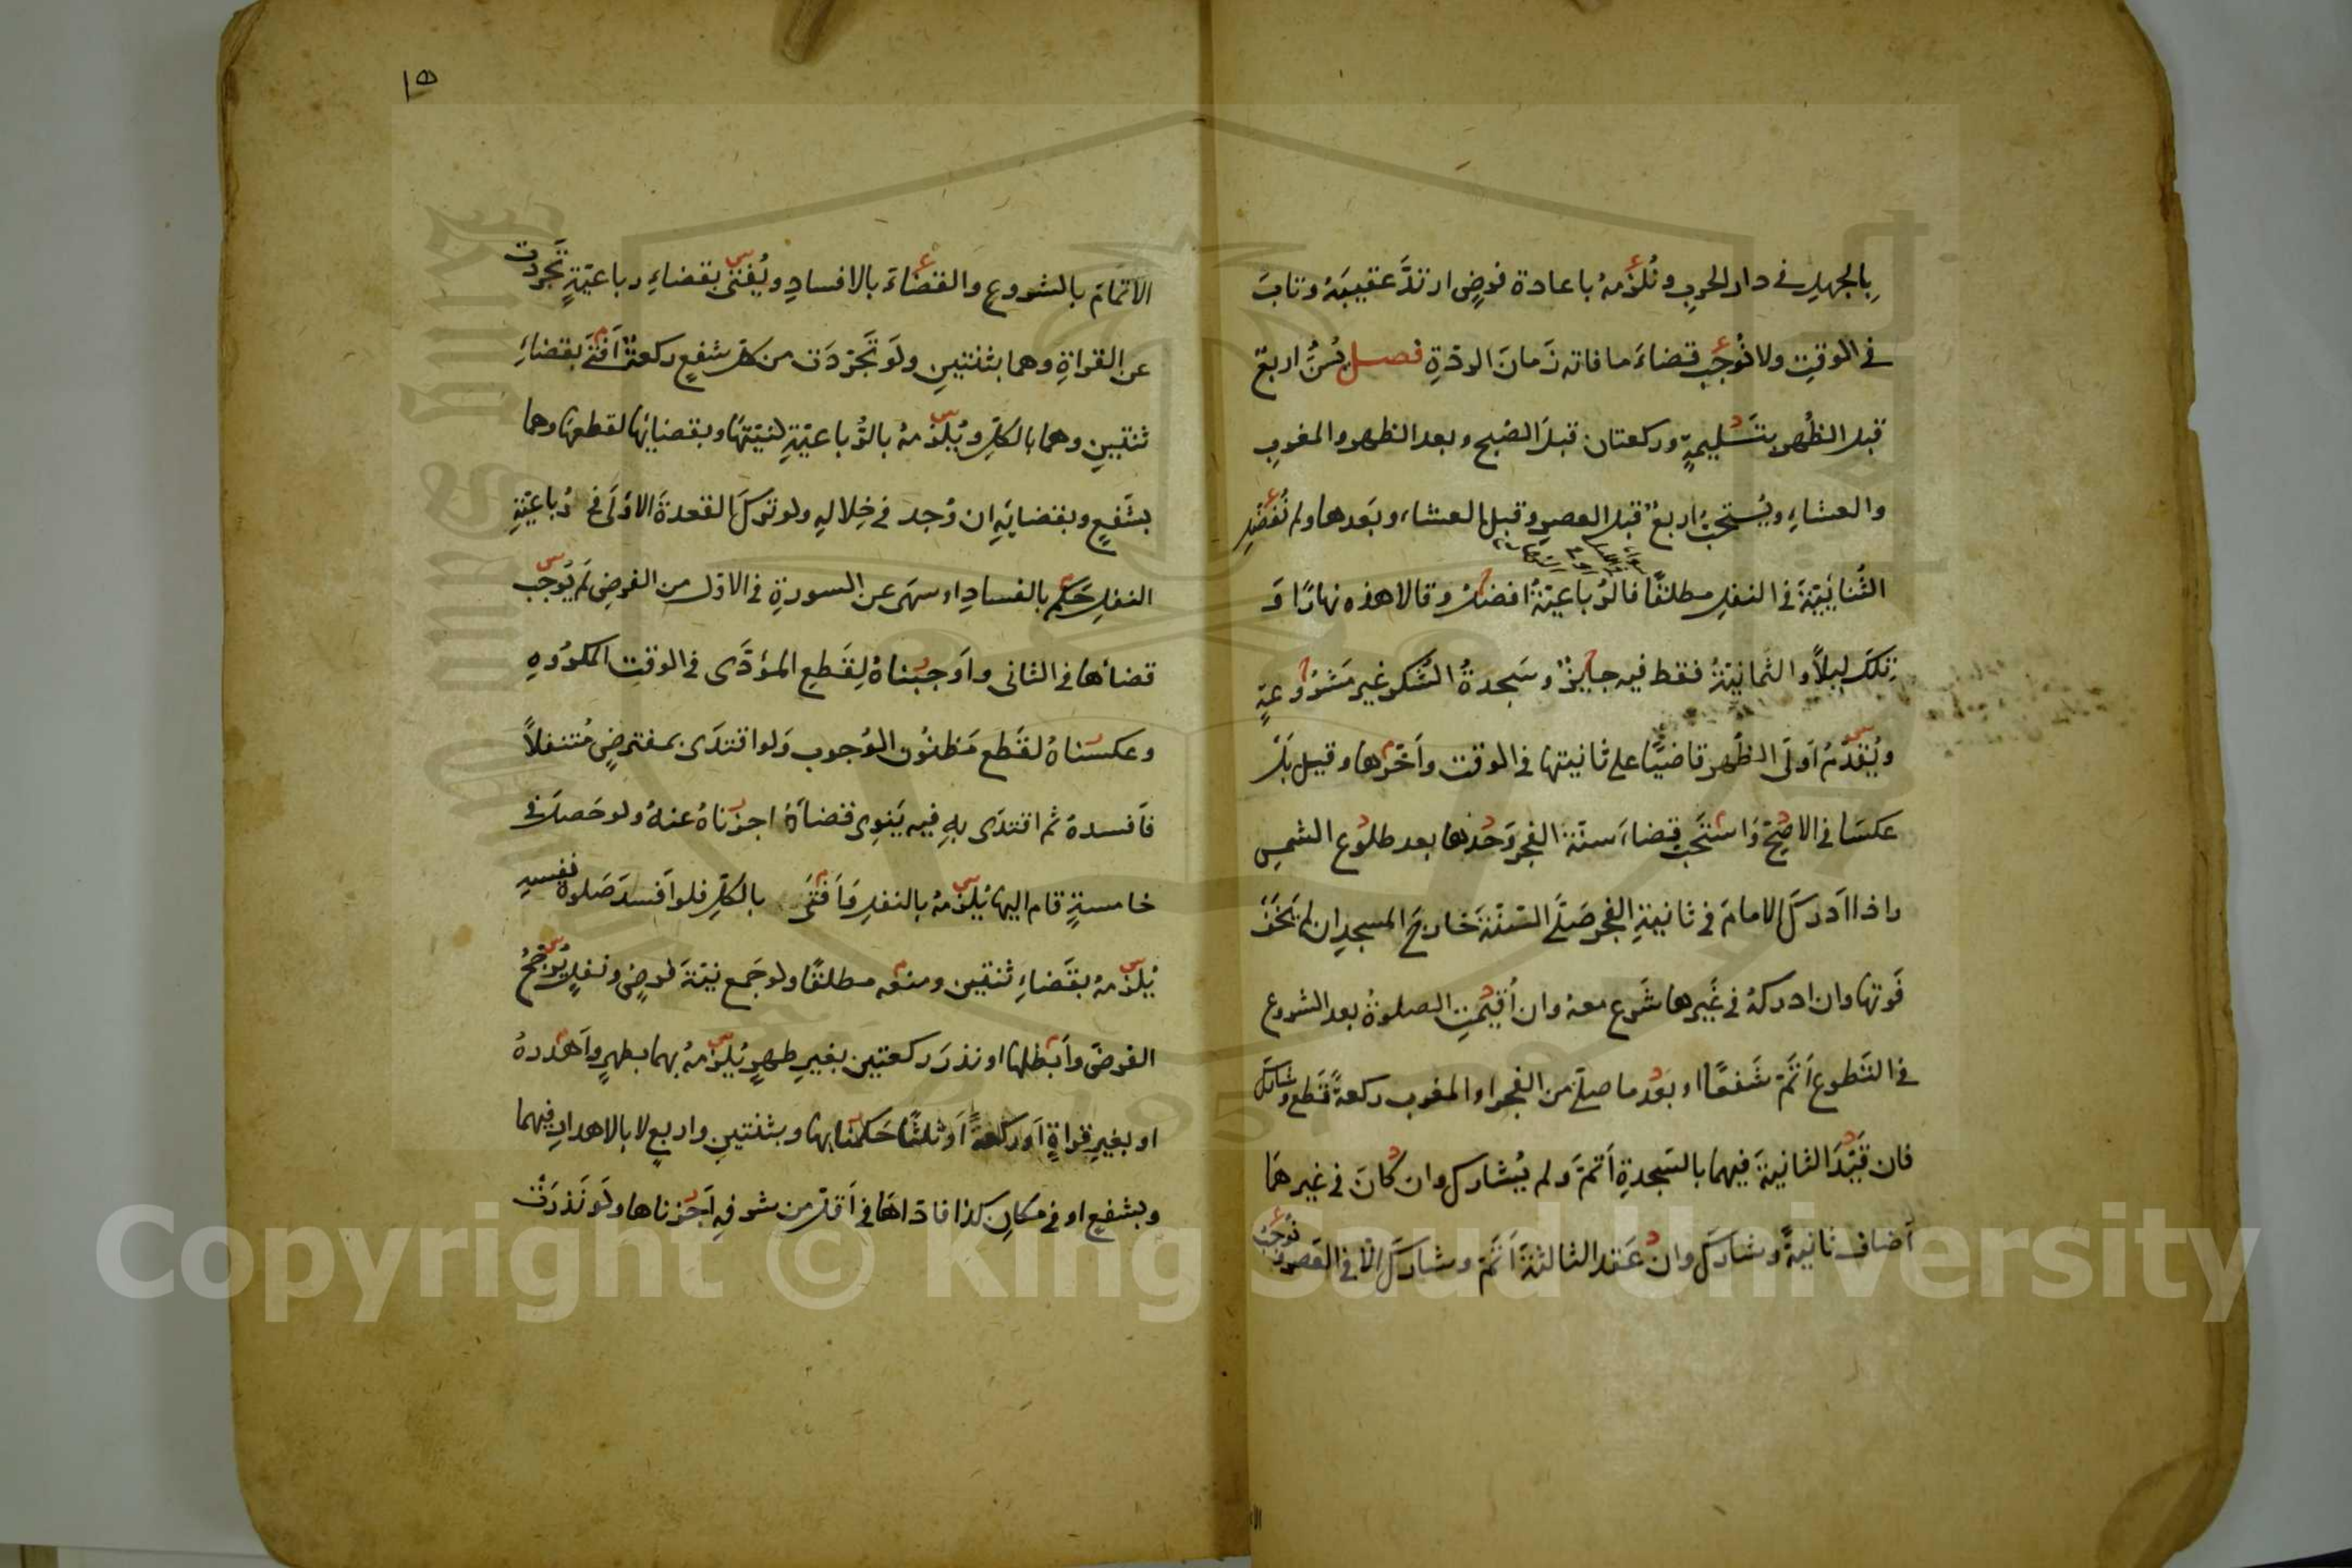 بِالجهلِ في دار الحربِ ونُلزمُهُ باعادة فرضٍ ارتدَّ عقيبَهُ وتابَ
في الوقتِ ولا نُوجب قضاءَ ما فاته زَمانَ الردّةِ فصل يُسَنُّ اربعٌ
قبل الظُهر بتسليمةٍ وركعتان قبلَ الصُبح وبعد الظهر والمغربِ
والعشاءِ ويُستحَبُّ اربعٌ قبل العصرِ وقبل العشاء وبَعدها ولم نُفضّلِ
الثُنائيّةَ في النفلِ مطلقًا فالرُباعيّةُ افضلُ وقالا هذه نهارًا وَ
تِلكَ ليلاً والثمانيّةُ فقط فيه جايزٌ وسَجدةُ الشُكر غير مَشرُوعةٍ
ويُقدّمُ اَولَى الظُهر قاضيًا على ثانيتها في الوقت واَخّرها وقيل بَل
عكسَا في الاصحّ وَاستُحَب قضاءَ سنّة الفجر وَحدَها بعد طلُوع الشمسِ
واذا اَدركَ الامامَ في ثانيةِ الفجر صَلَّى السُنّةَ خارجَ المسجدِ ان لم يَخَفْ
فَوتها وان ادركهُ في غَيرها شَرع معهُ وان اُقيمتِ الصلوةُ بعد الشروع
في التَطوع اَتَمَّ شَفعًا او بَعد ما صلى من الفجر او المغرب ركعةً قَطع وشاركَ
فان قيّدَ الثانيةَ فيهما بالسَجدةِ اَتمّ وَلم يُشارك وان كانَ في غيرهمَا
اَضاف ثانيةً وشاركَ وان عَقد الثالثةَ اَتَمّ وشاركَ الّا في العَصر ونُوجبُ
١٥
الاتمامَ بالشروعِ والقضَاءَ بالافسادِ ويُفتي بقضاءِ رباعيّةٍ تجرّدت
عن القراةِ وهما بثنتينِ ولَو تَجرّدَت من كل شفعٍ ركعةٌ اَفتَى بقضاءِ
ثنتينِ وهما بالكلِّ ويُلزمهُ بالرُّباعيّةِ لنيّتها وبقضايها لقطعها وهما
بشَفعٍ وبقضايهِ ان وُجد في خِلالهِ ولو تركَ القعدةَ الاُولَى في رُباعيّةِ
النفلِ حَكم بالفسادِ او سهَى عن السورةِ في الاوّل من الفرضِ لَم يُوجب
قضاَها في الثاني واَوجبناهُ لِقَطعِ المؤدَّى في الوقتِ المكرُوهِ
وعكسناهُ لقَطع مَظنُون الوُجوب وَلو اقتدَى بمفترضٍ مُتنفلاً
فاَفسدهُ ثم اقتدَى بهِ فيه يَنوِي قضاَهُ اجزناهُ عنهُ ولو حَصلَ في
خامسةٍ قام اليها يُلزمهُ بالنفلِ وَاَفتَى بالكلِّ فلو اَفسدَ صَلوةَ نفسهِ
يُلزمهُ بقَضاءِ ثنتين ومنعه مطلقًا ولو جَمع نيّةَ فرضٍ ونفلٍ يُرجّحُ
الفرضَ واَبطلها او نذرَ ركعتين بغيرِ طهرٍ يُلزمهُ بهما بطهرٍ واَهدرهُ
او بغيرِ قراةٍ اَو ركعةً اَو ثلثًا حَكمنا بها وبثنتينِ واربعٍ لا بالاهدارِ فيهما
وبشفعٍ او في مَكانِ كذا فادّاهَا في اَقلّ من شرفهِ اَجزناها ولَو نَذرَتْ
Copyright © King Saud University